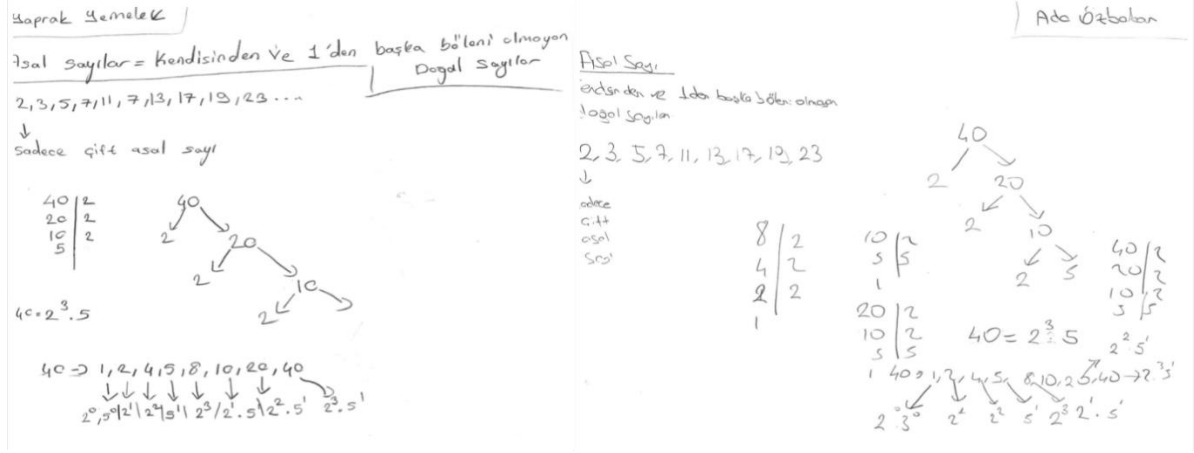 Yaprak Yemelek
Asal sayılar = Kendisinden ve 1'den başka böleni olmayan
Doğal Sayılar
2,3,5,7,11,7,13,17,19,23....
↓
sadece çift asal sayı
40 | 2
20 | 2
10 | 2
5
40
2 20
2 10
2
40=2³.5
40 => 1,2,4,5,8,10,20,40
2⁰,5⁰/2¹/2²/5¹/2³/2¹.5¹/2².5¹ 2³.5¹
Ada Özbalan
Asal Sayı
endisinden ve 1den başka böleni olmayan
doğal sayılar
2,3,5,7,11,13,17,19,23
↓
adece
çift
asal
sayı
8 | 2
4 | 2
2 | 2
1
10 | 2
5 | 5
1
20 | 2
10 | 2
5 | 5
1
40
2 20
2 10
2 5
40 | 2
20 | 2
10 | 2
5 | 5
40=2³.5
2².5¹
40=1,2,4,5,8,10,20,40→2³5¹
2⁰.3⁰ 2¹ 2² 5¹ 2³ 2¹.5¹